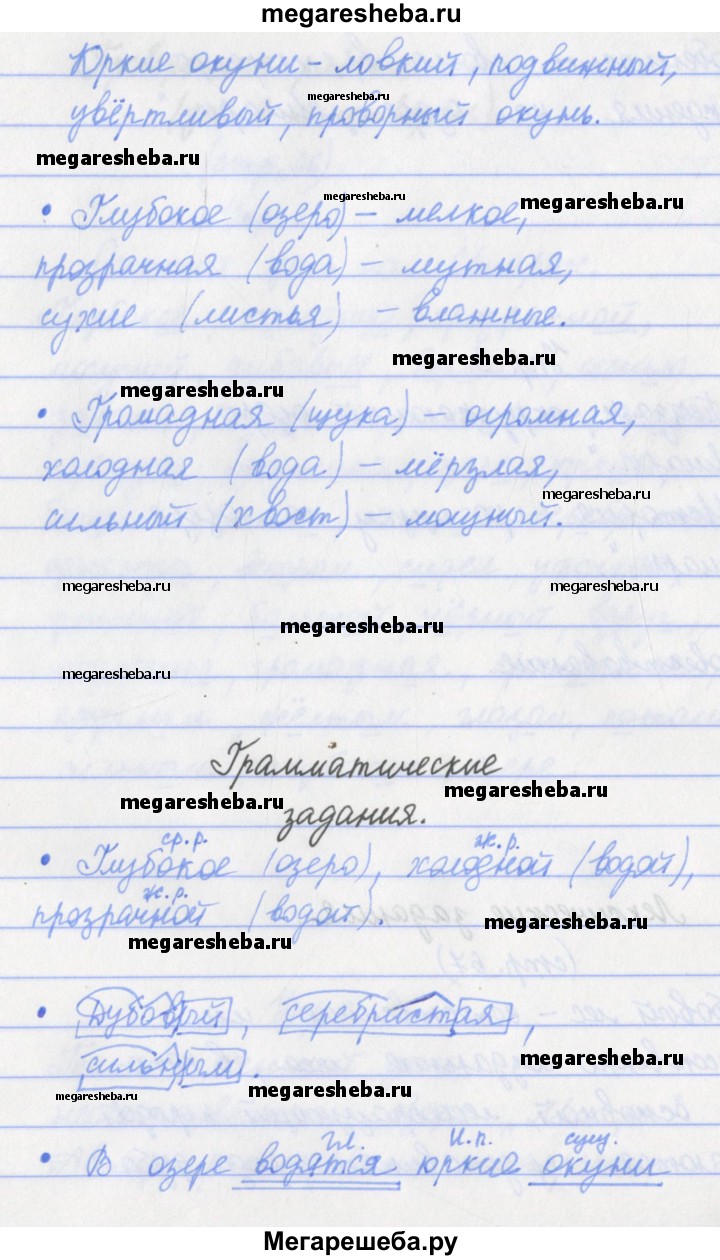 megaresheba.ru
Юркие окуни – ловкий, подвижный,
megaresheba.ru
увёртливый, проворный окунь.
megaresheba.ru
megaresheba.ru
megaresheba.ru
• Глубокое (озеро) – мелкое,
прозрачная (вода) – мутная,
сухие (листья) – влажные.
megaresheba.ru
megaresheba.ru
• Громадная (щука) – огромная,
холодная (вода) – мёрзлая,
megaresheba.ru
сильный (хвост) – мощный.
megaresheba.ru
megaresheba.ru
megaresheba.ru
megaresheba.ru
Грамматические
megaresheba.ru
megaresheba.ru
задания.
ср. р. ж. р.
• Глубокое (озеро), холодной (водой),
ж. р.
прозрачной (водой).
megaresheba.ru
megaresheba.ru
• Дубовый, серебристая,
megaresheba.ru
сильным.
megaresheba.ru
megaresheba.ru
гл. И.п. сущ.
• В озере водятся юркие окуни
Мегарешеба.ру